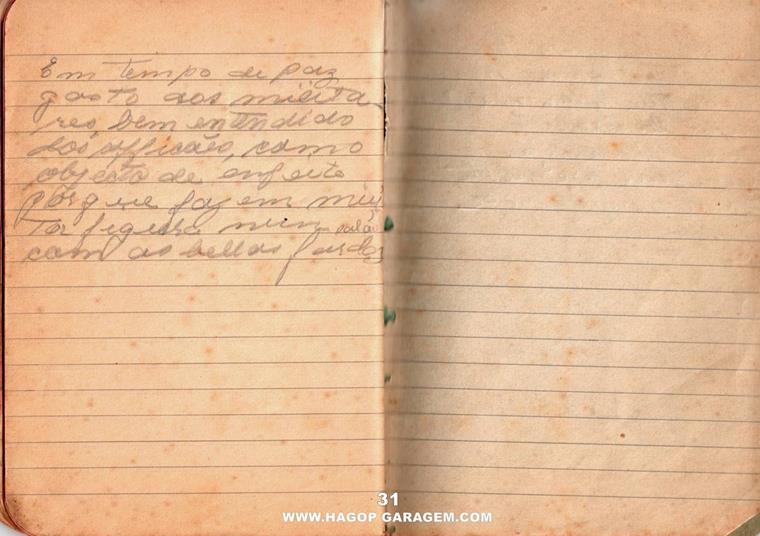 Em tempo de paz
gosto dos milita
res, bem entendido
dos officiaes, como
objecto de enfeite
porque fazem mui
ta figura num salão
com as bellas fardas
31
WWW.HAGOP GARAGEM.COM